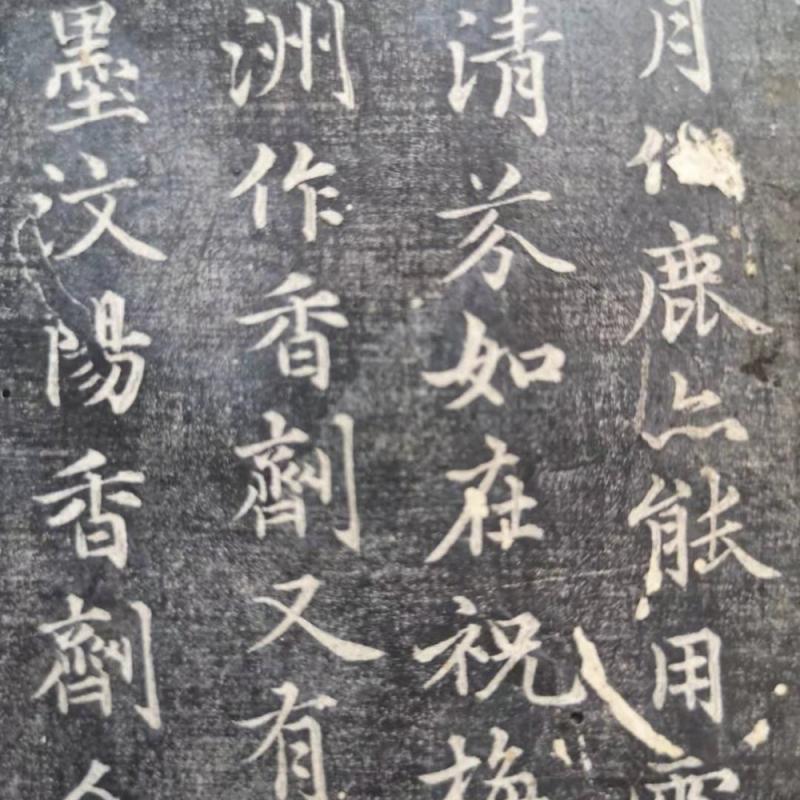 月鹿亦能用
清芬如在祝梅
洲作香劑又有
墨汶陽香劑